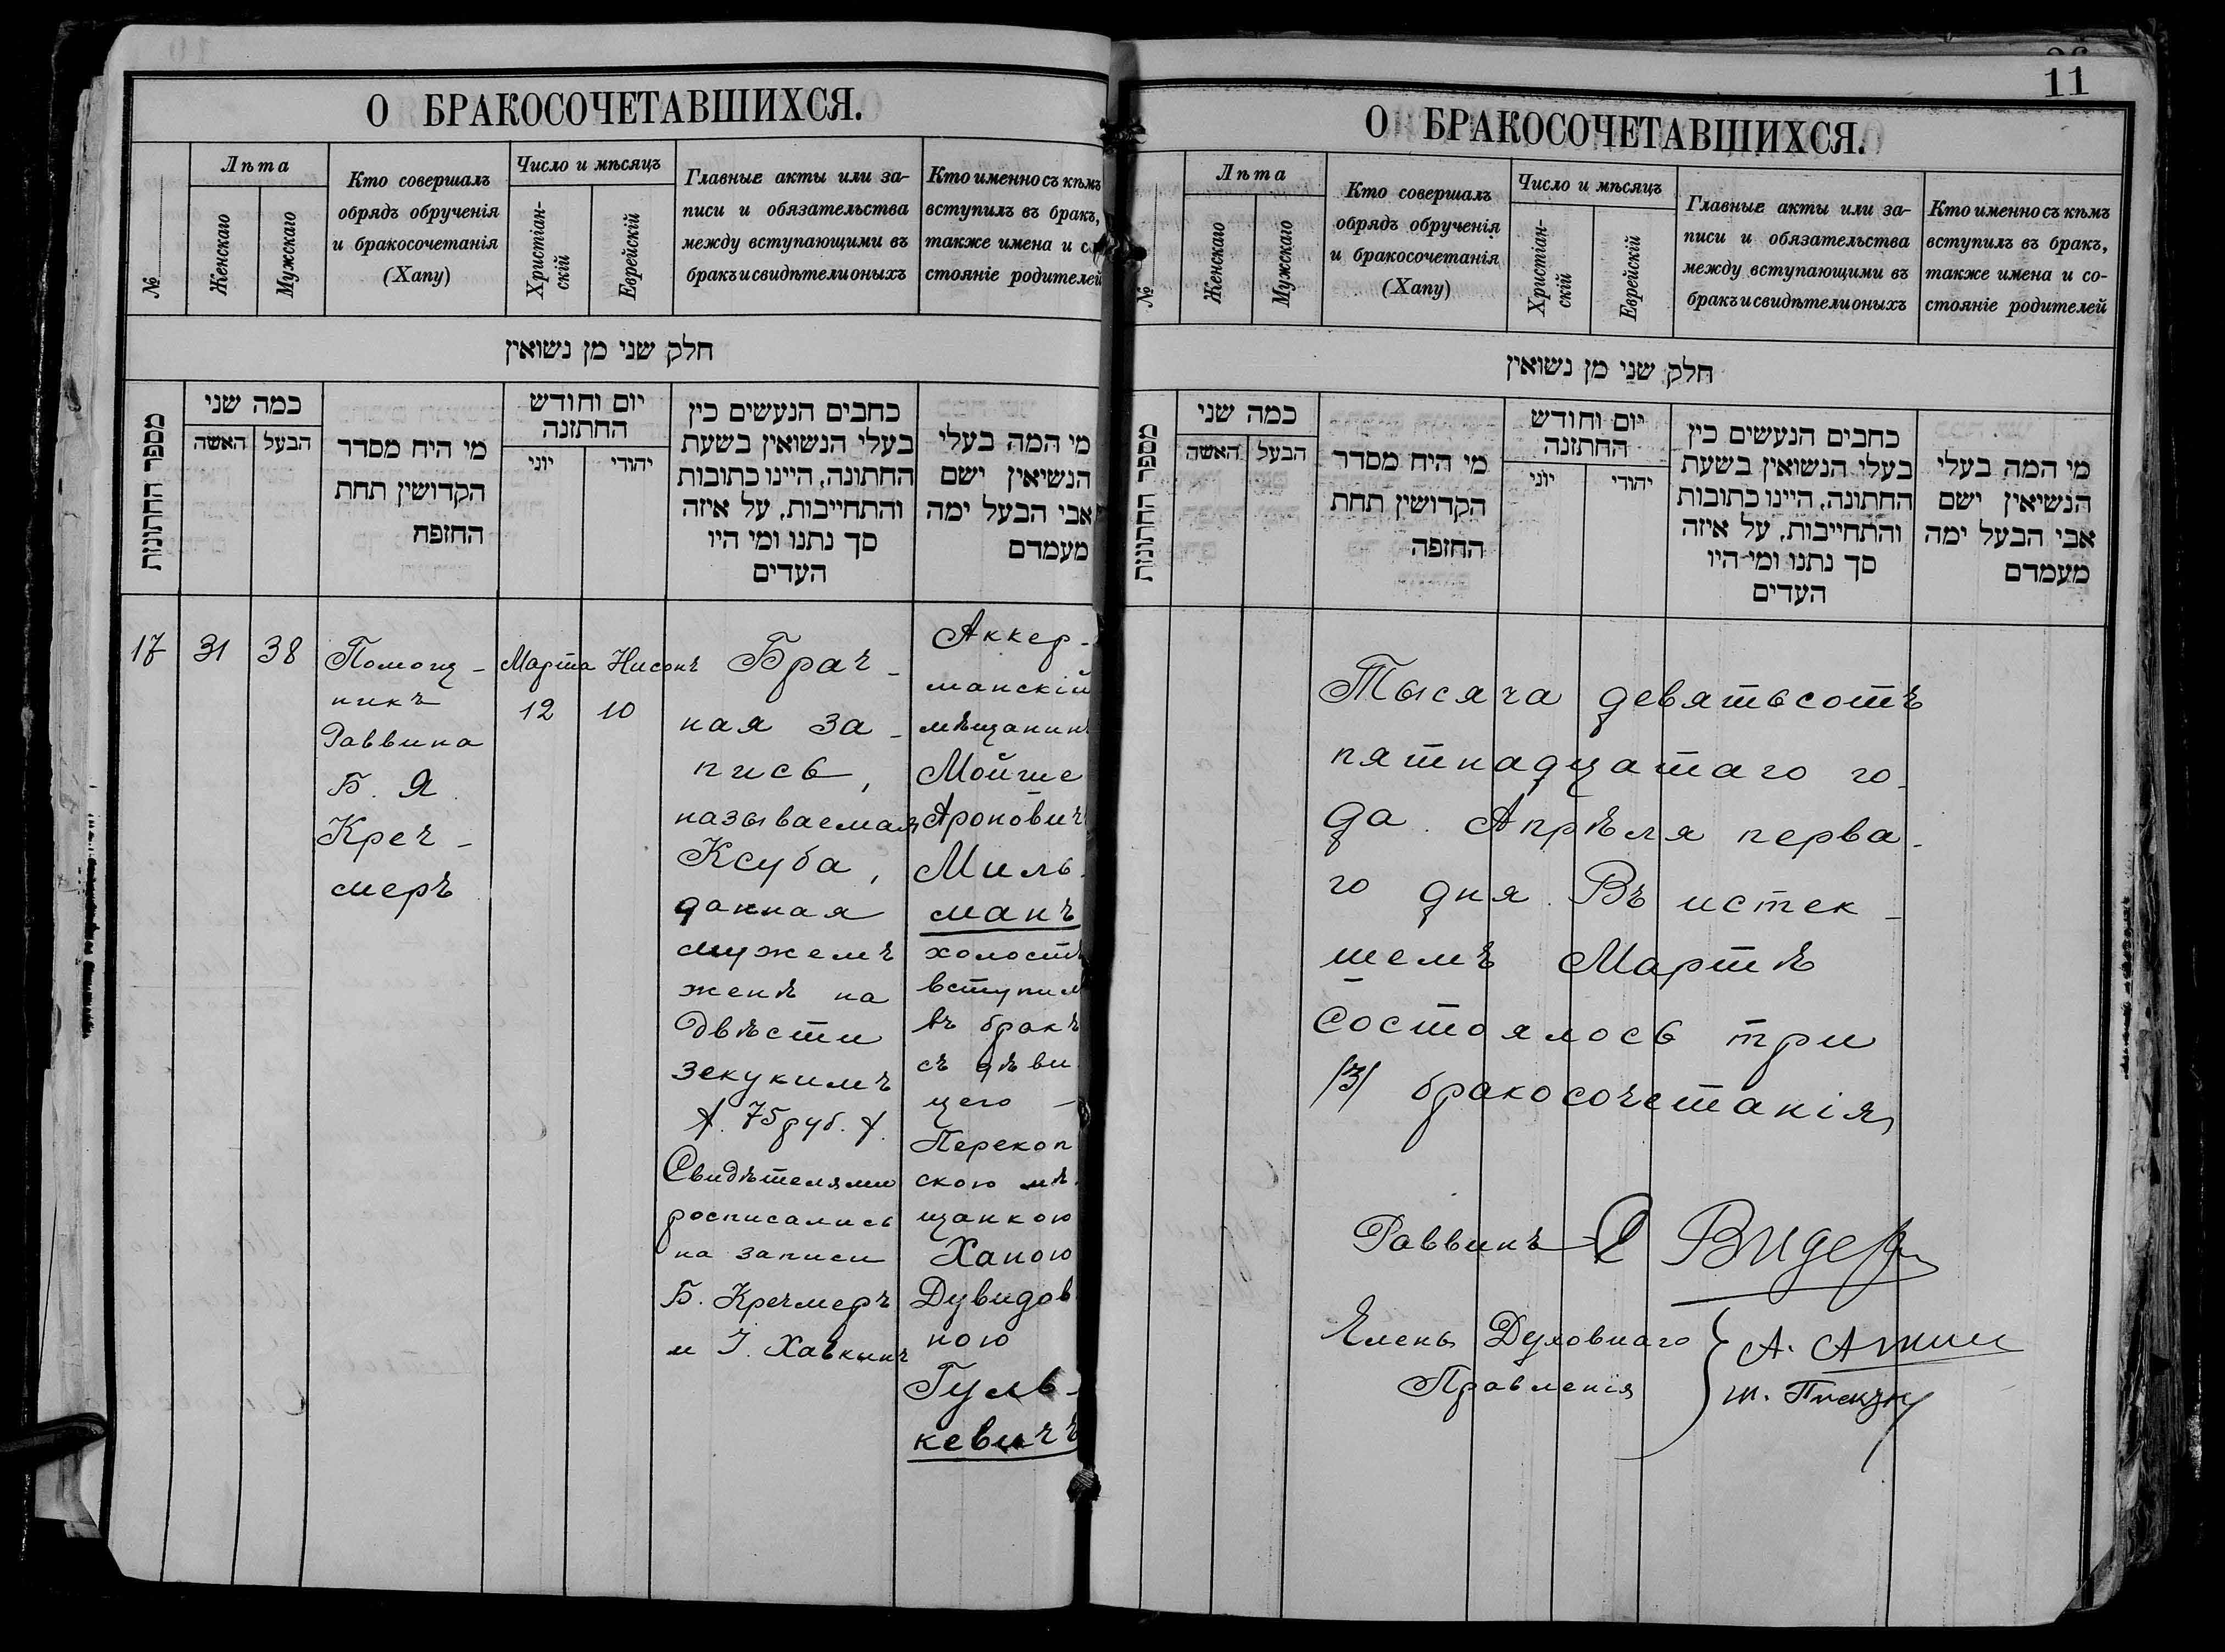 О БРАКОСОЧЕТАВШИХСЯ.
№
Лѣта
Женскаго
Мужскаго
Кто совершалъ
обрядъ обрученія
и бракосочетанія
(Хапу)
Число и мѣсяцъ
Христіан-
скій
Еврейскій
Главные акты или за-
писи и обязательства
между вступающими въ
бракъ и свидѣтели оныхъ
Кто именно съ кѣмъ
вступилъ въ бракъ,
также имена и со-
стояніе родителей
חלק שני מן נשואין
מספר החתונות
כמה שני
האשה
הבעל
מי היח מסדר
הקדושין תחת
החופח
יום וחודש
החתונה
יוני
יהודי
כחבים הנעשים כין
בעלי הנשואין בשעת
החתונה, היינו כתובות
והתחייבות, על איזה
סך נתנו ומי היו
העדים
מי המה בעלי
הנשיאין ישם
אבי הבעל ימה
מעמדם
17
31
38
Помощ-
никъ
Раввина
Б. Я.
Креч-
меръ
Марта
12
Нисонъ
10
Брач-
ная за-
пись,
называемая
Ксуба,
данная
мужемъ
женѣ на
двѣсти
зекукимъ
75 руб.
Свидѣтелями
росписались
на записи
Б. Кречмеръ
и І. Хавкинъ
Аккер-
манскій
мѣщанинъ
Мойше
Ароновичъ
Миль-
манъ
холостъ
вступилъ
въ бракъ
съ дѣви-
цею
Перекоп
скою мѣ-
щанкою
Ханою
Дувидов
ною
Гуль-
кевичъ
11
О БРАКОСОЧЕТАВШИХСЯ.
№
Лѣта
Женскаго
Мужскаго
Кто совершалъ
обрядъ обрученія
и бракосочетанія
(Хапу)
Число и мѣсяцъ
Христіан-
скій
Еврейскій
Главные акты или за-
писи и обязательства
между вступающими въ
бракъ и свидѣтели оныхъ
Кто именно съ кѣмъ
вступилъ въ бракъ,
также имена и со-
стояніе родителей
חלק שני מן נשואין
מספר החתונות
כמה שני
האשה
הבעל
מי היח מסדר
הקדושין תחת
החופה
יום וחודש
החתונה
יוני
יהודי
כחבים הנעשים כין
בעלי הנשואין בשעת
החתונה, היינו כתובות
והתחייבות, על איזה
סך נתנו ומי היו
העדים
מי המה בעלי
הנשיאין ישם
אבי הבעל ימה
מעמדם
Тысяча девятьсотъ
пятнадцатаго го-
да Апрѣля перва-
го дня. Въ истек-
шемъ Мартѣ
состоялось три
/3/ бракосочетанія
Раввинъ Видер
Члены Духовнаго
Правленія
А.